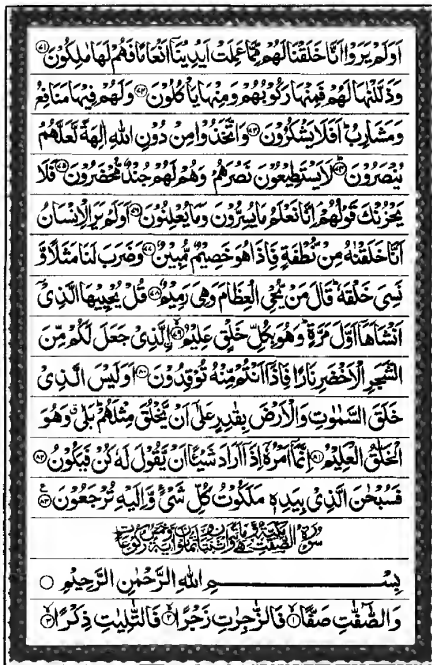 اَوَلَمْ يَرَوْا اَنَّا خَلَقْنَا لَهُمْ مِّمَّا عَمِلَتْ اَيْدِيْنَآ اَنْعَامًا فَهُمْ لَهَا مٰلِكُوْنَ ﴿۷۱﴾
وَذَلَّلْنٰهَا لَهُمْ فَمِنْهَا رَكُوْبُهُمْ وَمِنْهَا يَاْكُلُوْنَ ﴿۷۲﴾ وَلَهُمْ فِيْهَا مَنَافِعُ
وَمَشَارِبُ ؕ اَفَلَا يَشْكُرُوْنَ ﴿۷۳﴾ وَاتَّخَذُوْا مِنْ دُوْنِ اللّٰهِ اٰلِهَةً لَّعَلَّهُمْ
يُنْصَرُوْنَ ﴿۷۴﴾ لَا يَسْتَطِيْعُوْنَ نَصْرَهُمْ ۙ وَهُمْ لَهُمْ جُنْدٌ مُّحْضَرُوْنَ ﴿۷۵﴾ فَلَا
يَحْزُنْكَ قَوْلُهُمْ ۘ اِنَّا نَعْلَمُ مَا يُسِرُّوْنَ وَمَا يُعْلِنُوْنَ ﴿۷۶﴾ اَوَلَمْ يَرَ الْاِنْسَانُ
اَنَّا خَلَقْنٰهُ مِنْ نُّطْفَةٍ فَاِذَا هُوَ خَصِيْمٌ مُّبِيْنٌ ﴿۷۷﴾ وَضَرَبَ لَنَا مَثَلًا وَّ
نَسِيَ خَلْقَهٗ ؕ قَالَ مَنْ يُّحْيِ الْعِظَامَ وَهِيَ رَمِيْمٌ ﴿۷۸﴾ قُلْ يُحْيِيْهَا الَّذِيْٓ
اَنْشَاَهَآ اَوَّلَ مَرَّةٍ ؕ وَهُوَ بِكُلِّ خَلْقٍ عَلِيْمٌ ﴿۷۹﴾ الَّذِيْ جَعَلَ لَكُمْ مِّنَ
الشَّجَرِ الْاَخْضَرِ نَارًا فَاِذَآ اَنْتُمْ مِّنْهُ تُوْقِدُوْنَ ﴿۸۰﴾ اَوَلَيْسَ الَّذِيْ
خَلَقَ السَّمٰوٰتِ وَالْاَرْضَ بِقٰدِرٍ عَلٰٓى اَنْ يَّخْلُقَ مِثْلَهُمْ ؕ بَلٰى ۗ وَهُوَ
الْخَلّٰقُ الْعَلِيْمُ ﴿۸۱﴾ اِنَّمَآ اَمْرُهٗٓ اِذَآ اَرَادَ شَيْـًٔا اَنْ يَّقُوْلَ لَهٗ كُنْ فَيَكُوْنُ ﴿۸۲﴾
فَسُبْحٰنَ الَّذِيْ بِيَدِهٖ مَلَكُوْتُ كُلِّ شَيْءٍ وَّاِلَيْهِ تُرْجَعُوْنَ ﴿۸۳﴾
سُوْرَةُ الصّٰٓفّٰتِ
بِسْمِ اللّٰهِ الرَّحْمٰنِ الرَّحِيْمِ
وَالصّٰٓفّٰتِ صَفًّا ﴿۱﴾ فَالزّٰجِرٰتِ زَجْرًا ﴿۲﴾ فَالتّٰلِيٰتِ ذِكْرًا ﴿۳﴾